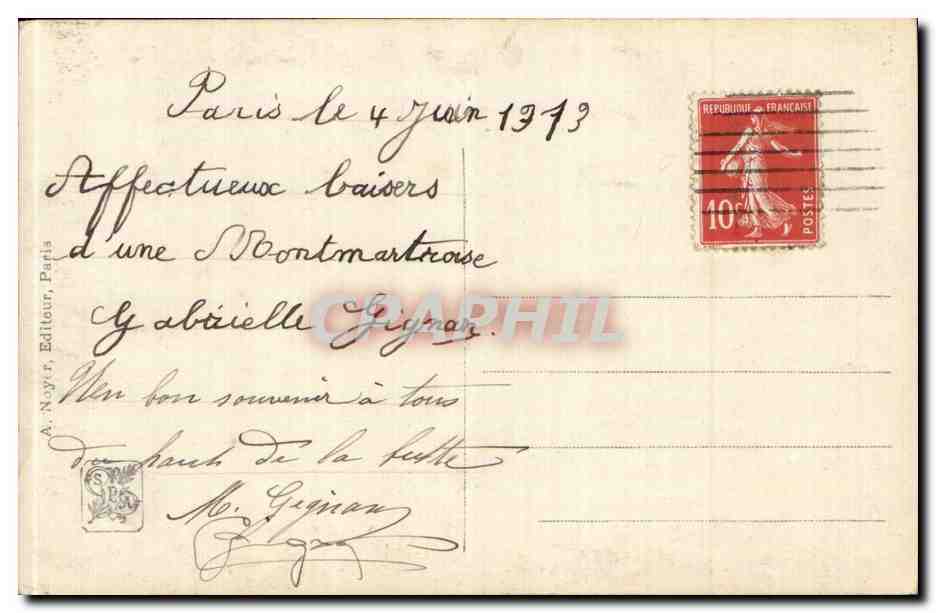 Paris le 4 Juin 1913
Affectueux baisers
d'une Montmartroise
Gabrielle Gignan.
Un bon souvenir à tous
du haut de la butte
M. Gignan
A. Noyer, Editeur, Paris
REPUBLIQUE FRANÇAISE
10c
POSTES
CRAPHIL